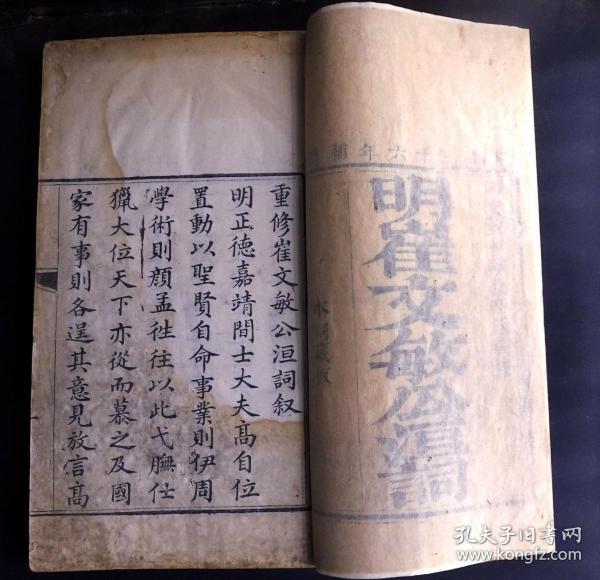 六年補
明崔文敏公洹詞
重修崔文敏公洹詞叙
明正德嘉靖間士大夫髙自位
置動以聖賢自命事業則伊周
學術則顔孟徃徃以此弋膴仕
獵大位天下亦從而慕之及國
家有事則各逞其意見放言髙
孔夫子旧书网
www.kongfz.com